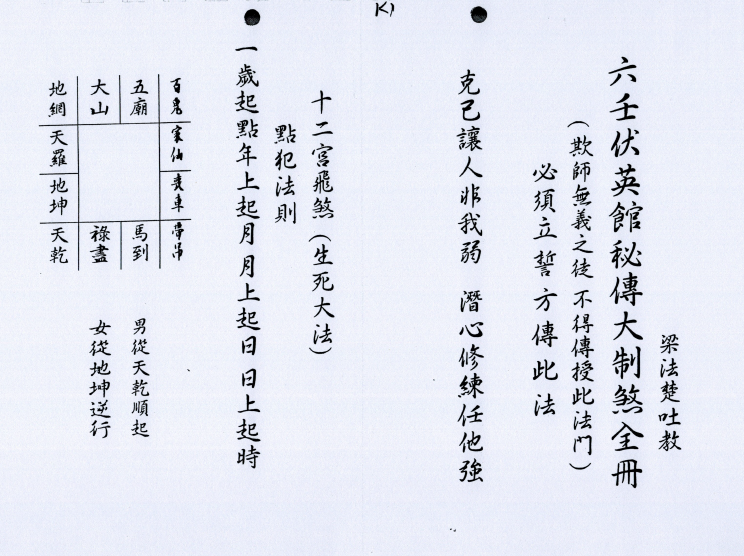 K1
梁法楚吐教
六壬伏英館秘傳大制煞全冊
(欺師無義之徒 不得傳授此法門)
必須立誓方傳此法
克己讓人非我弱 潛心修練任他強
十二宮飛煞(生死大法)
點犯法則
一歲起點年上起月 月上起日 日上起時
百鬼
五廟
大山
地網
家仙
天羅
喪車
地坤
帶吊
馬到
祿盡
天乾
男從天乾順起
女從地坤逆行